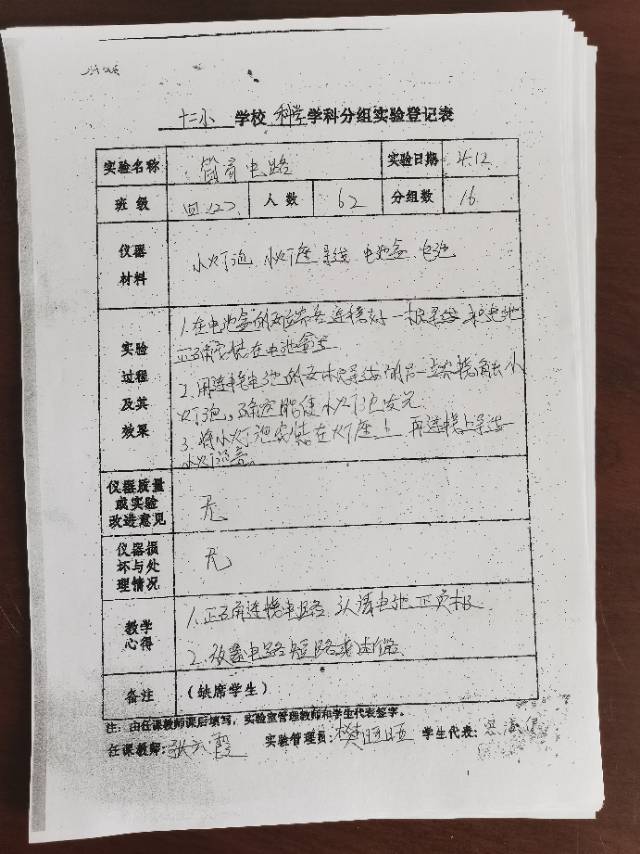 十二小 学校 科学 学科分组实验登记表
实验名称 简易电路 实验日期 4.12
班级 四(2) 人数 62 分组数 16
仪器材料 小灯泡 小灯座 导线 电池盒 电池
实验过程及其效果 1.在电池盒的两端各连接好一根导线 把电池
正确安装在电池盒里
2.用连接电池的两根导线的另一端接触小
灯泡,使小灯泡发光
3.将小灯泡安装在灯座上 再连接上导线
小灯泡亮。
仪器质量或实验改进意见 无
仪器损坏与处理情况 无
教学心得 1.正确连接电路 认清电池正负极
2.电路短路
备注 (缺席学生)
注:由任课教师课后填写,实验室管理教师和学生代表签字。
任课教师: 张 霞 实验管理员: 樊 学生代表: